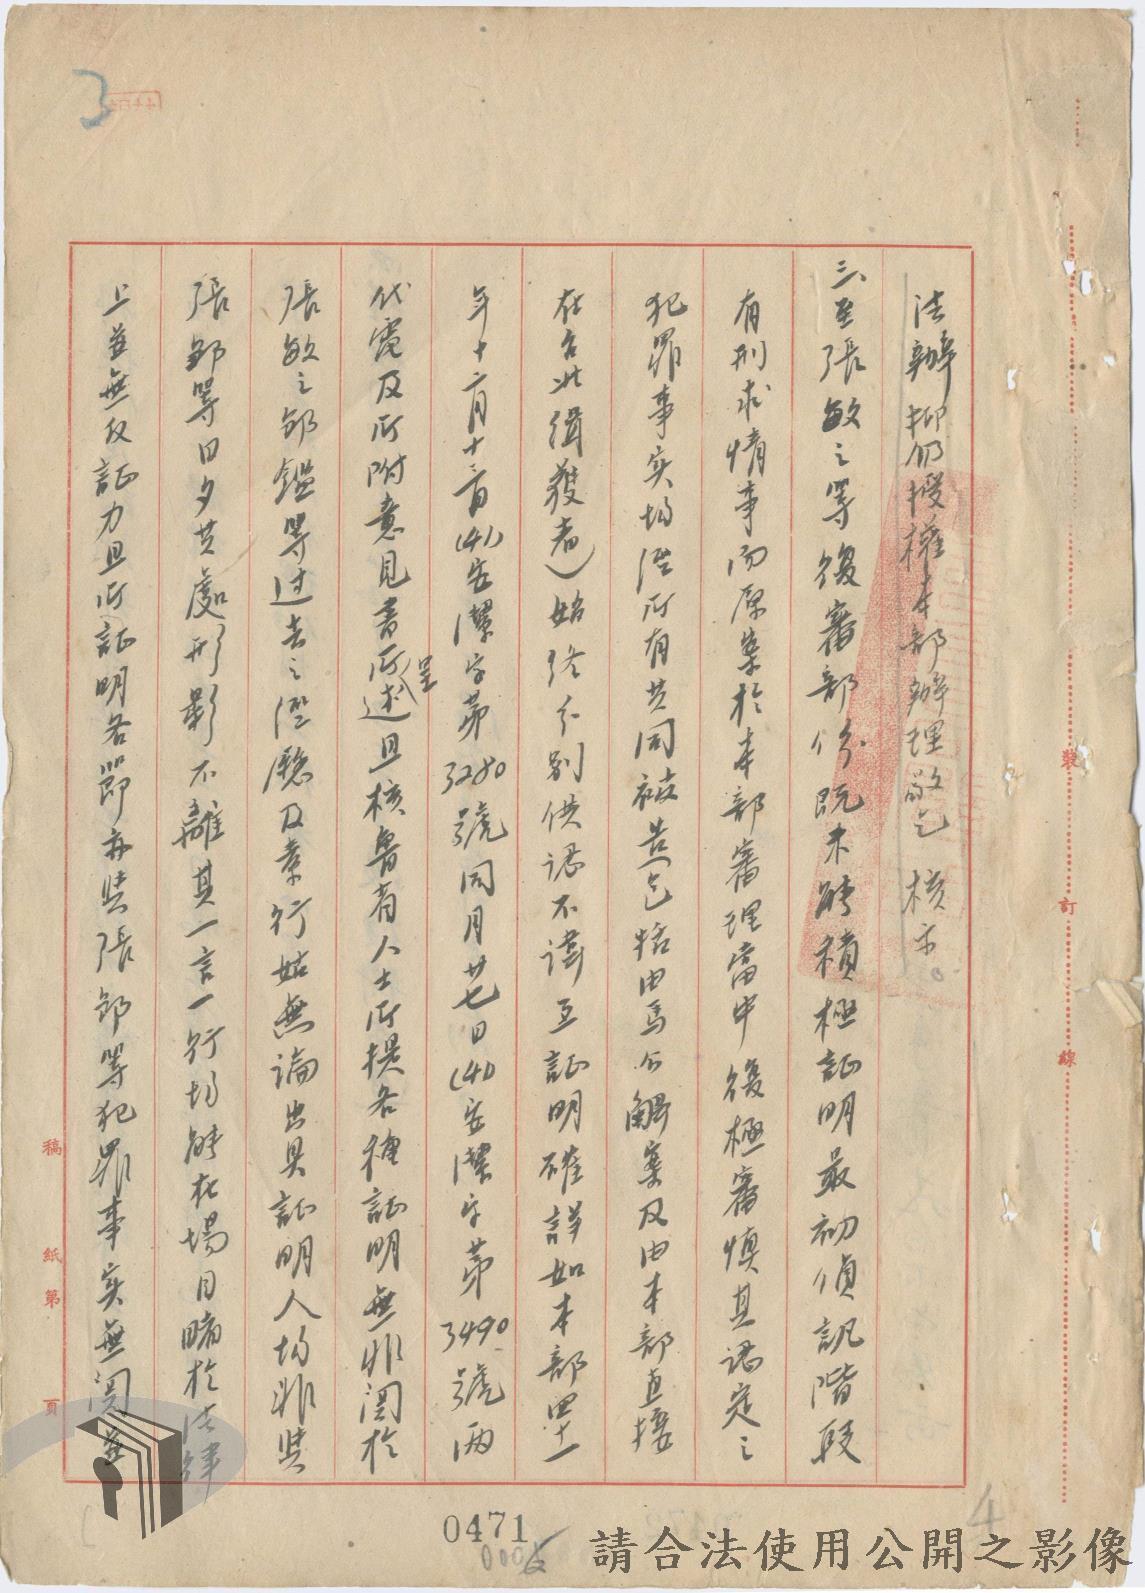 3
法辦抑仍授權本部辦理敬乞 核示。
三、至張敏之等復審部份既未能積極証明最初偵訊階段
有刑求情事而原案於本部審理當中復極審慎其認定之
犯罪事实均經所有共同被告(包括由馬公解案及由本部直接
在台北緝獲者)始終分別供認不諱互証明確詳如本部四十一
年十二月十二日(41)安潔字第3280號同月廿七日(41)安潔字第3490號兩
代電及所附意見書所呈述且核魯省人士所提各種証明無非関於
張敏之鄒鑑等过去之經歷及素行姑無論出具証明人均非與
張鄒等日夕共處形影不離其一言一行均能在場目睹於法律
上並無反証力且所証明各節亦與張鄒等犯罪事实無関並
裝
訂
線
稿 紙 第 頁
0471
0005
4
請合法使用公開之影像